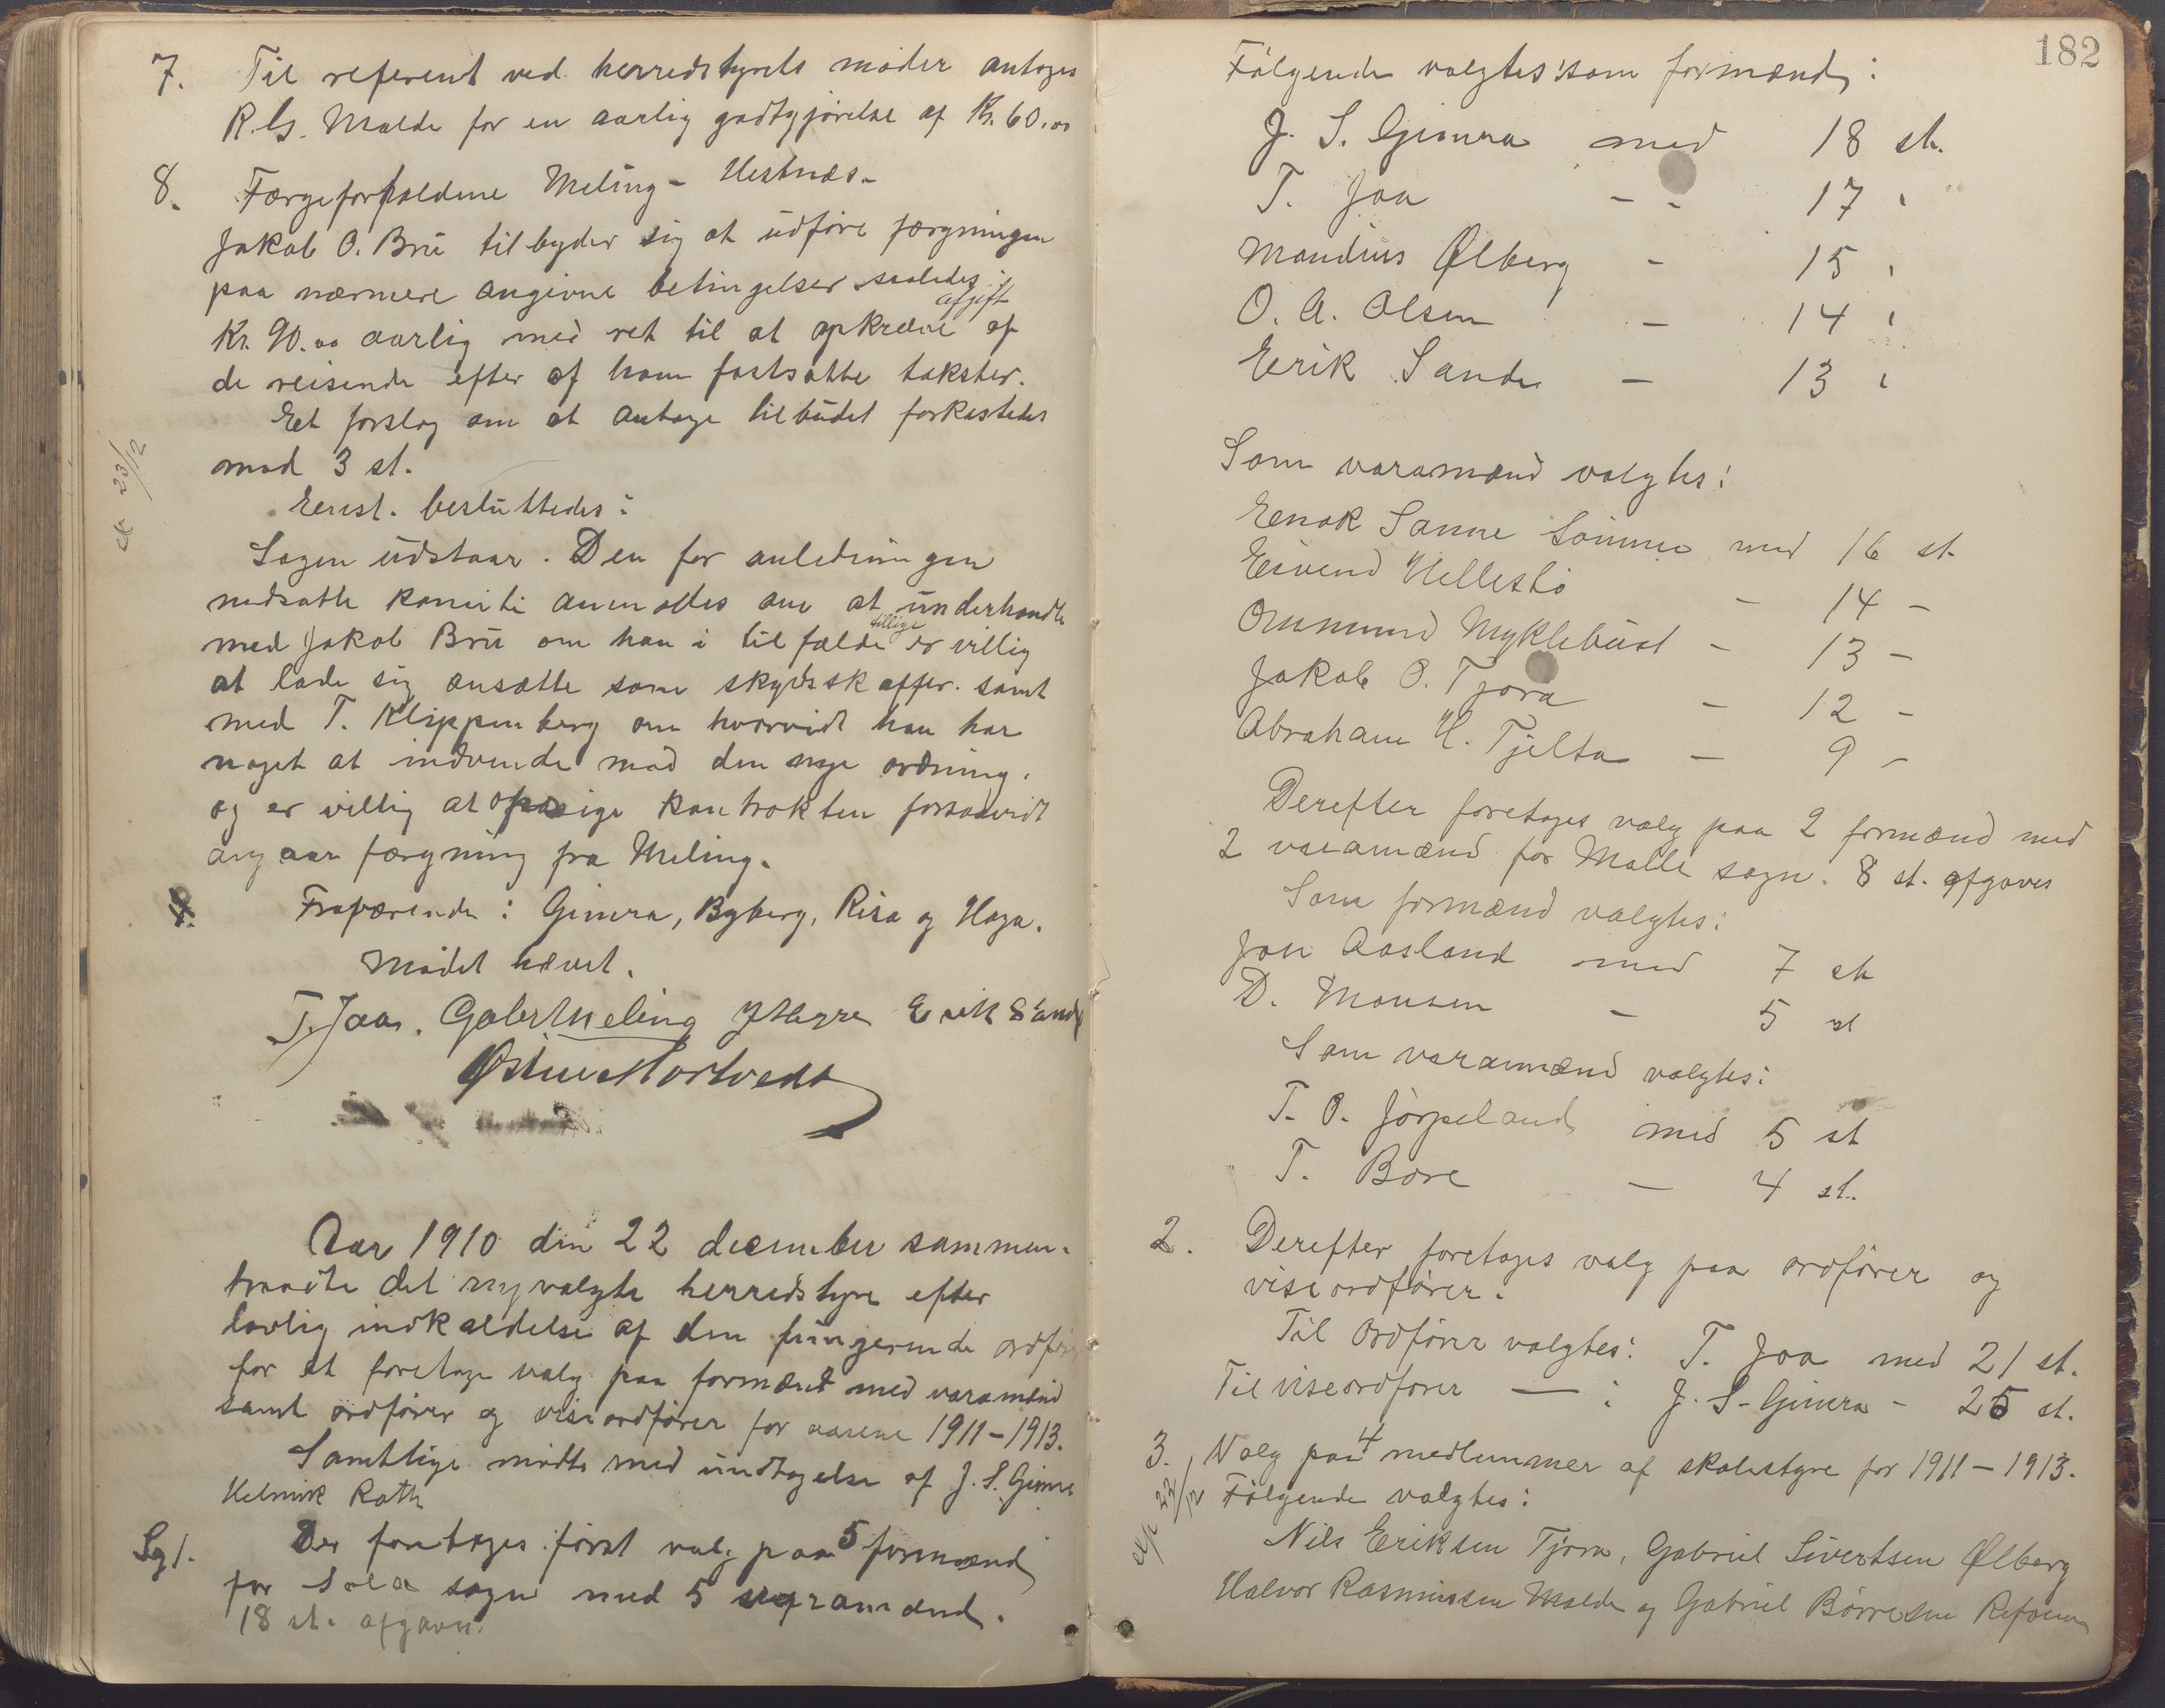 7. Til referent ved herredstyrets møder antoges
R. G. Malde for en aarlig godtgjørelse af Kr. 60.00
8. Færgeforholdene Meling - Hestnæs.
Jakob O. Bru tilbyder sig at udføre færgningen
paa nærmere angivne betingelser saaledes:
afgift
Kr. 90.00 aarlig med ret til at opkræve af
de reisende efter af ham fastsatte takster.
Et forslag om at antage tilbudet forkastedes
mod 3 st.
Eenst. besluttedes:
ex 23/12
Sagen udstaar. Den for anledningen
nedsatte komite anmodes om at underhandle
tillige
med Jakob Bru om han i tilfælde er villig
at lade sig ansætte som skydsskaffer. samt
med T. Klippenberg om hvorvidt han har
noget at indvende mod den nye ordning.
og er villig at opsige kontrakten forsaavidt
angaar færgning fra Meling.
Fraværende: Gimra, Byberg, Risa og Haga.
Mødet hævet.
T. Joa. Gabr Meling Erik Sande
Østen Hortvedt
Aar 1910 den 22 december sammen-
traadte det nyvalgte herredstyre efter
lovlig indkaldelse af den fungerende ordfører
for at foretage valg paa formænd med varamænd
samt ordfører og viseordfører for aarene 1911-1913.
Samtlige mødte med undtagelse af J. S. Gimre
Helmik Roth
Sg 1. Der foretoges først valg paa 5 formænd
for Sola sogn med 5 varamænd.
18 st. afgaves.
182
Følgende valgtes som formænd:
J. S. Gimra med 18 st.
T. Joa - - 17 "
Maudius Ølberg - 15 "
O. A. Olsen - 14 "
Eerik Sande - 13 "
Som varamænd valgtes:
Eenok Sanne Sømme med 16 st.
Eivend Hellestø - 14 -
Ommund Myklebust - 13 -
Jakob O. Tjora - 12 -
Abraham H. Tjelta - 9 -
Derefter foretoges valg paa 2 formænd med
2 varamænd for Malle sogn. 8 st. afgaves
Som formænd valgtes:
Jon Aasland med 7 st
D. Monsen - 5 st
Som varamænd valgtes:
T. O. Jørpeland med 5 st
T. Bore - 4 st.
2. Derefter foretoges valg paa ordfører og
viseordfører.
Til Ordfører valgtes: T. Joa med 21 st.
Til viseordfører — : J. S. Gimra - 25 st.
3. Valg paa 4 medlemmer af skolestyre for 1911-1913.
exp 22/12
Følgende valgtes:
Nils Eriksen Tjora, Gabriel Sivertsen Ølberg
Halvor Rasmussen Malde og Gabriel Børresen